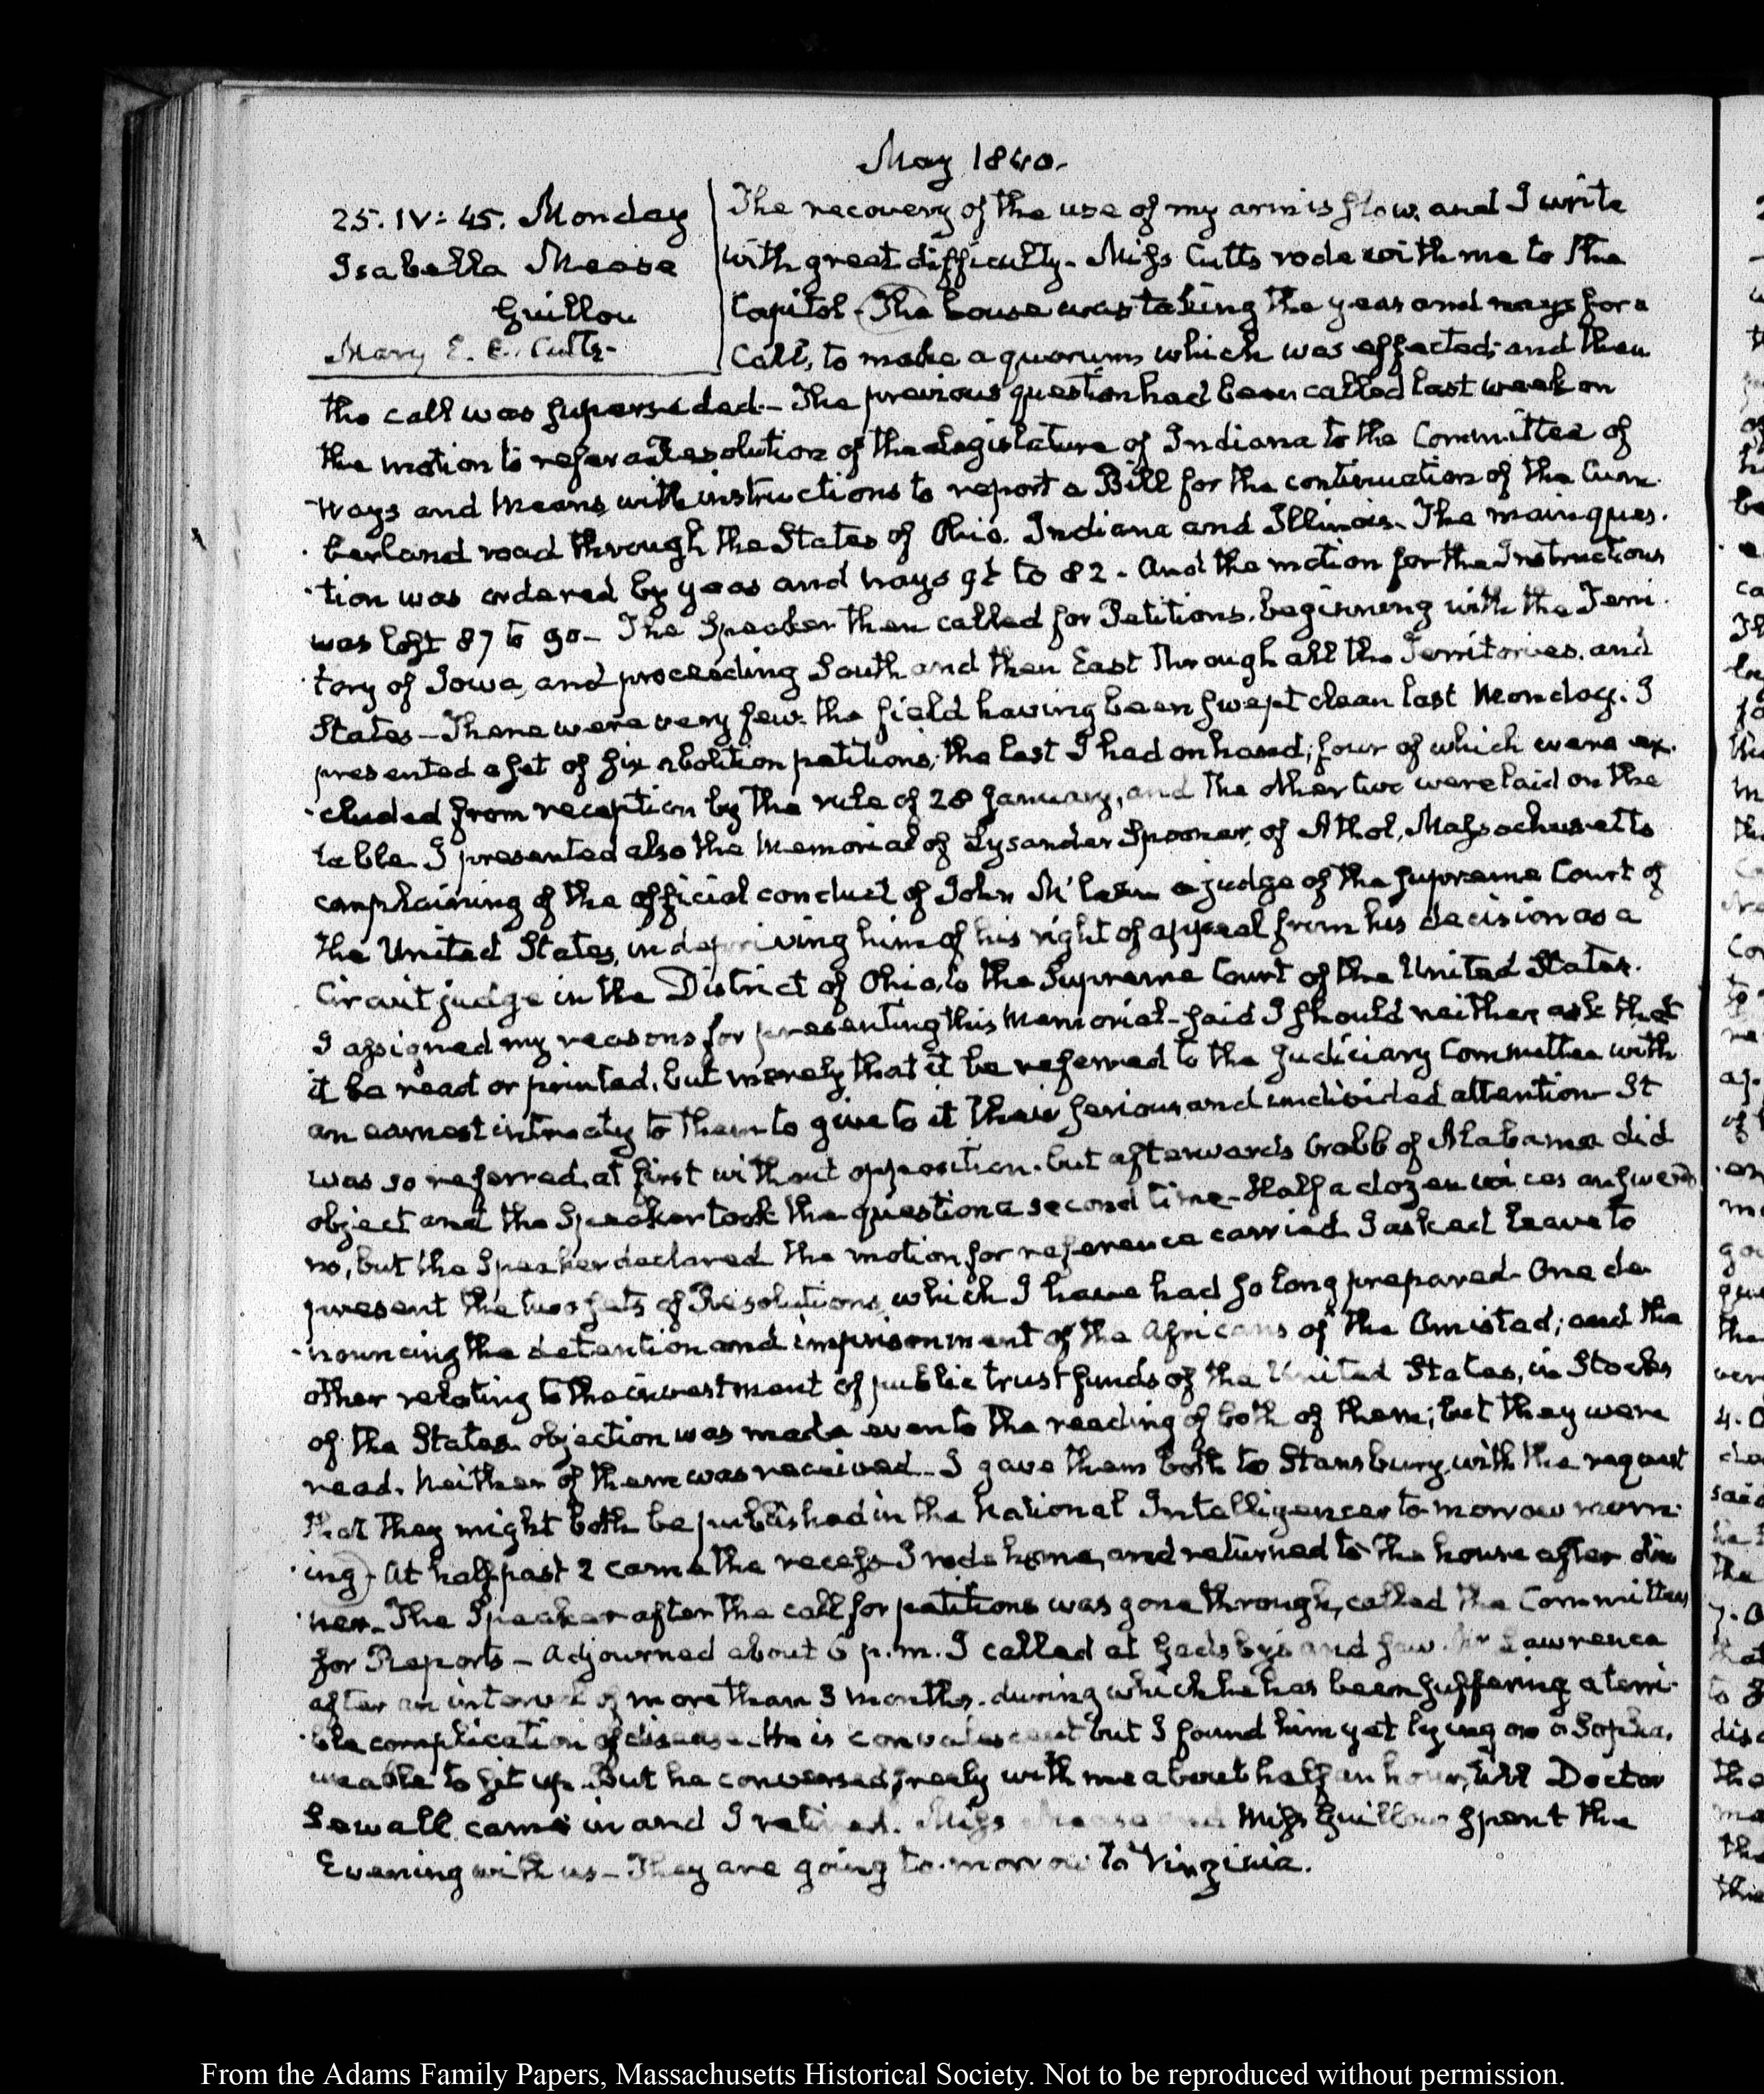 May 1840.
25. IV: 45. Monday
Isabella Mease
Guillou
Mary E. E. Cutts.
The recovery of the use of my arm is slow, and I write
with great difficulty. Miss Cutts rode with me to the
Capitol. The house was taking the yeas and nays for a
Call, to make a quorum, which was effected; and then
the call was superseded. The previous question had been called last week on
the motion to refer a Resolution of the Legislature of Indiana to the Committee of
Ways and Means with instructions to report a Bill for the continuation of the Cum-
berland road through the States of Ohio, Indiana and Illinois. The main ques-
tion was ordered by yeas and nays to 82. And the motion for the Instructions
was lost 87 to 90 – The Speaker then called for Petitions, beginning with the Terri-
tory of Iowa, and proceeding South and then East through all the Territories, and
States – There were very few, the field having been swept clean last Monday. I
presented a set of six abolition petitions; the last I had on hand; four of which were ex-
cluded from reception by the rule of 28 January, and the other two were laid on the
table. I presented also the Memorial of Lysander Spooner, of Athol, Massachusetts
complaining of the official conduct of John McLean a judge of the Supreme Court of
the United States, in depriving him of his right of appeal from his decision as a
Circuit judge in the District of Ohio, to the Supreme Court of the United States.
I assigned my reasons for presenting this Memorial – said I should neither ask that
it be read or printed, but merely that it be referred to the Judiciary Committee with
an earnest intreaty to them to give to it their serious and undivided attention – It
was so referred, at first without opposition, but afterwards Crabb of Alabama did
object and the Speaker took the question a second time – Half a dozen voices answered
no, but the Speaker declared the motion for reference carried. I asked leave to
present the two sets of Resolutions, which I have had so long prepared. One de-
nouncing the detention and imprisonment of the Africans of the Amistad; and the
other relating to the investment of public trust funds of the United States, in Stocks
of the States. objection was made even to the reading of both of them; but they were
read. Neither of them was received. I gave them both to Stansbury, with the request
that they might both be published in the National Intelligencer to-morrow morn-
ing. At half past 2 came the recess. I rode home, and returned to the house after din-
ner. The Speaker after the call for petitions was gone through, called the Committees
for Reports – Adjourned about 6 p.m. I called at Gadsby's and saw Mr Lawrence
after an interval of more than 3 months, during which he has been suffering a terri-
ble complication of disease. He is convalescent but I found him yet lying on a Sopha,
unable to sit up. But he conversed freely with me about half an hour, till Doctor
Sewall came in and I retired. Miss Mease and Miss Guillou spent the
Evening with us – They are going to-morrow to Virginia.
From the Adams Family Papers, Massachusetts Historical Society. Not to be reproduced without permission.